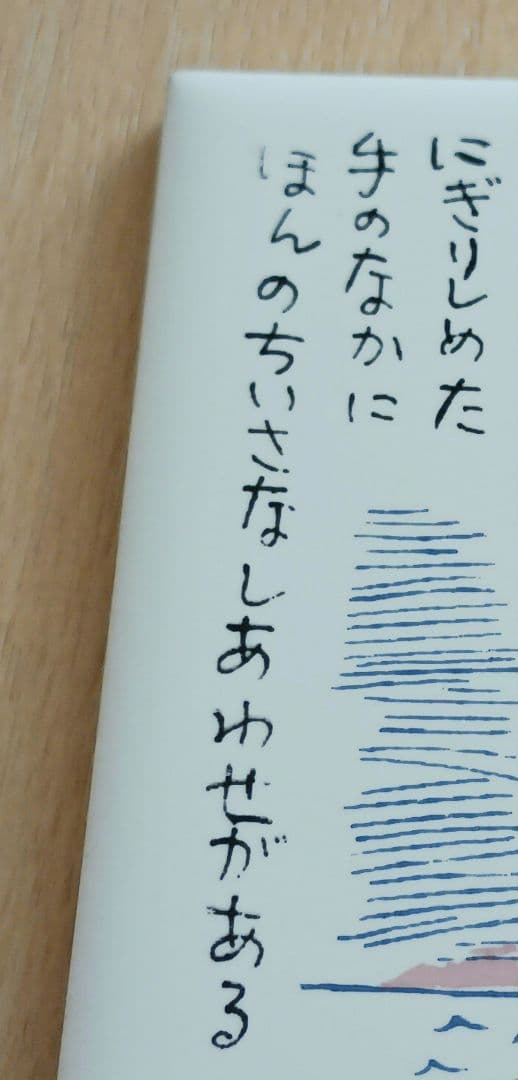 にぎりしめた
手のなかに
ほんのちいさなしあわせがある